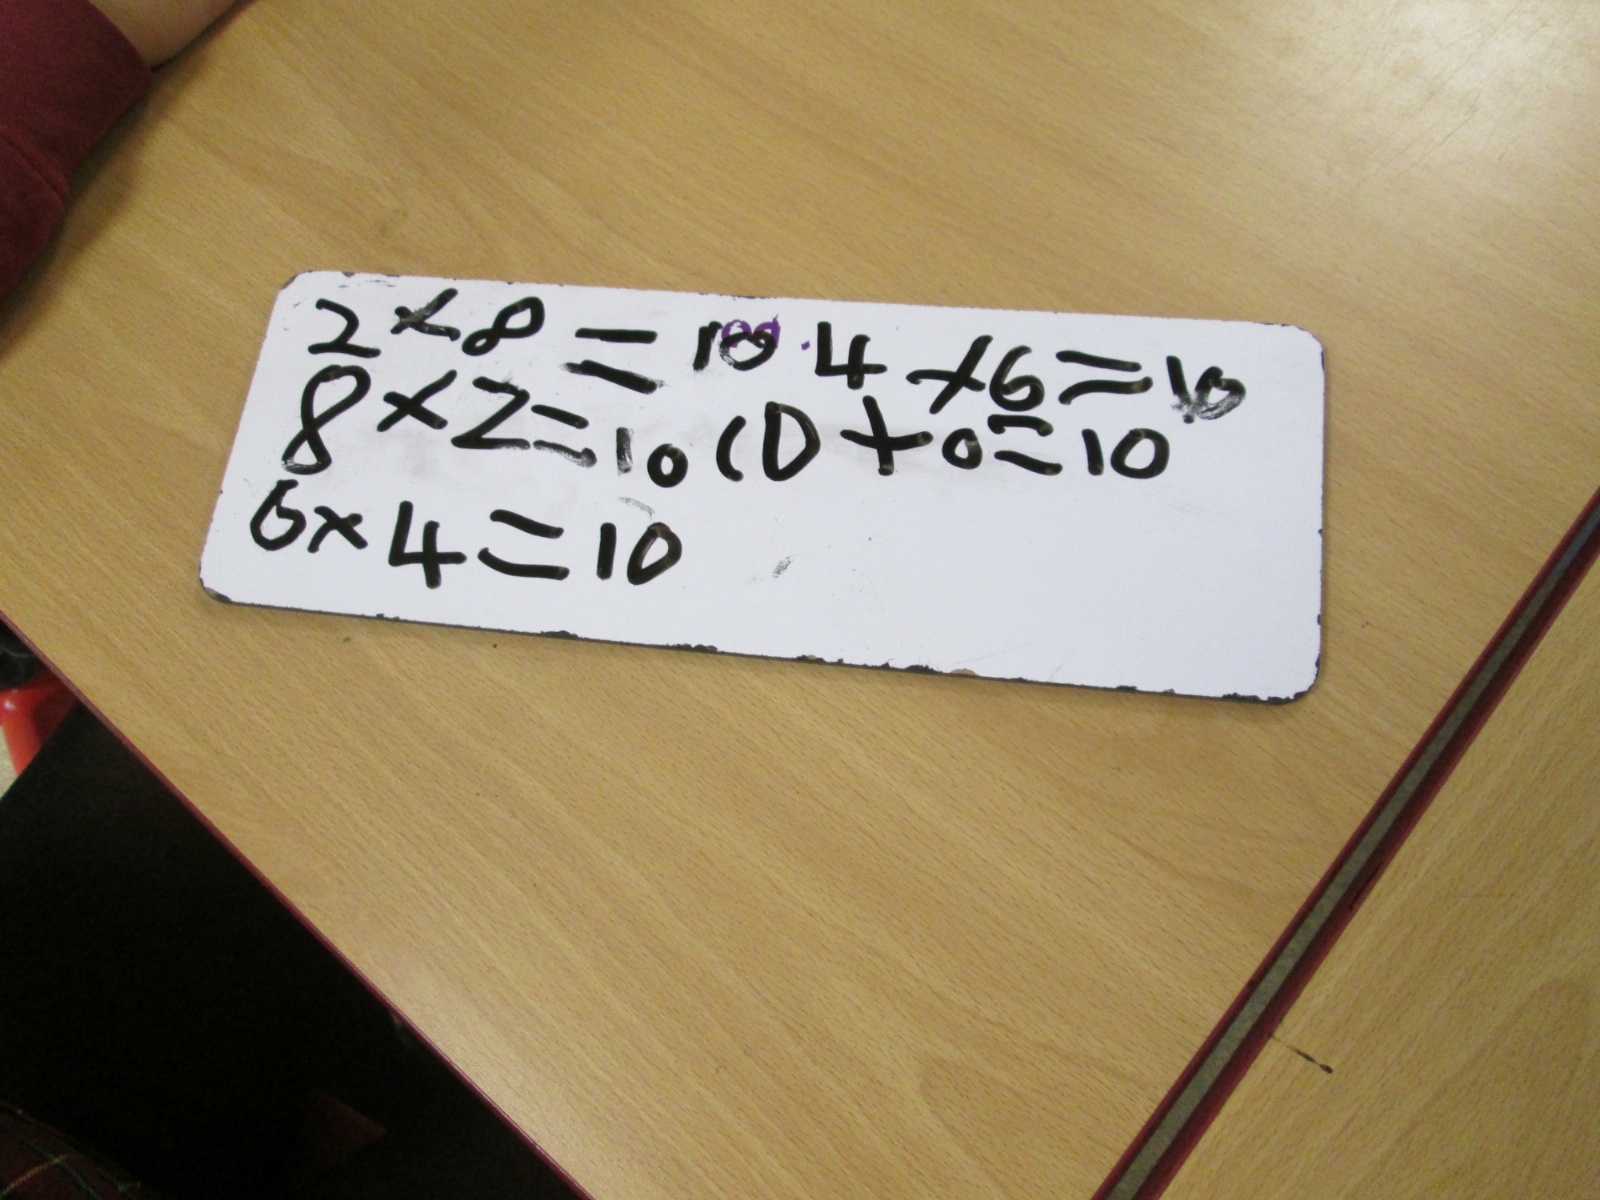 2 × 8 = 10 4 × 6 = 10
8 × 2 = 10 10 + 0 = 10
6 × 4 = 10